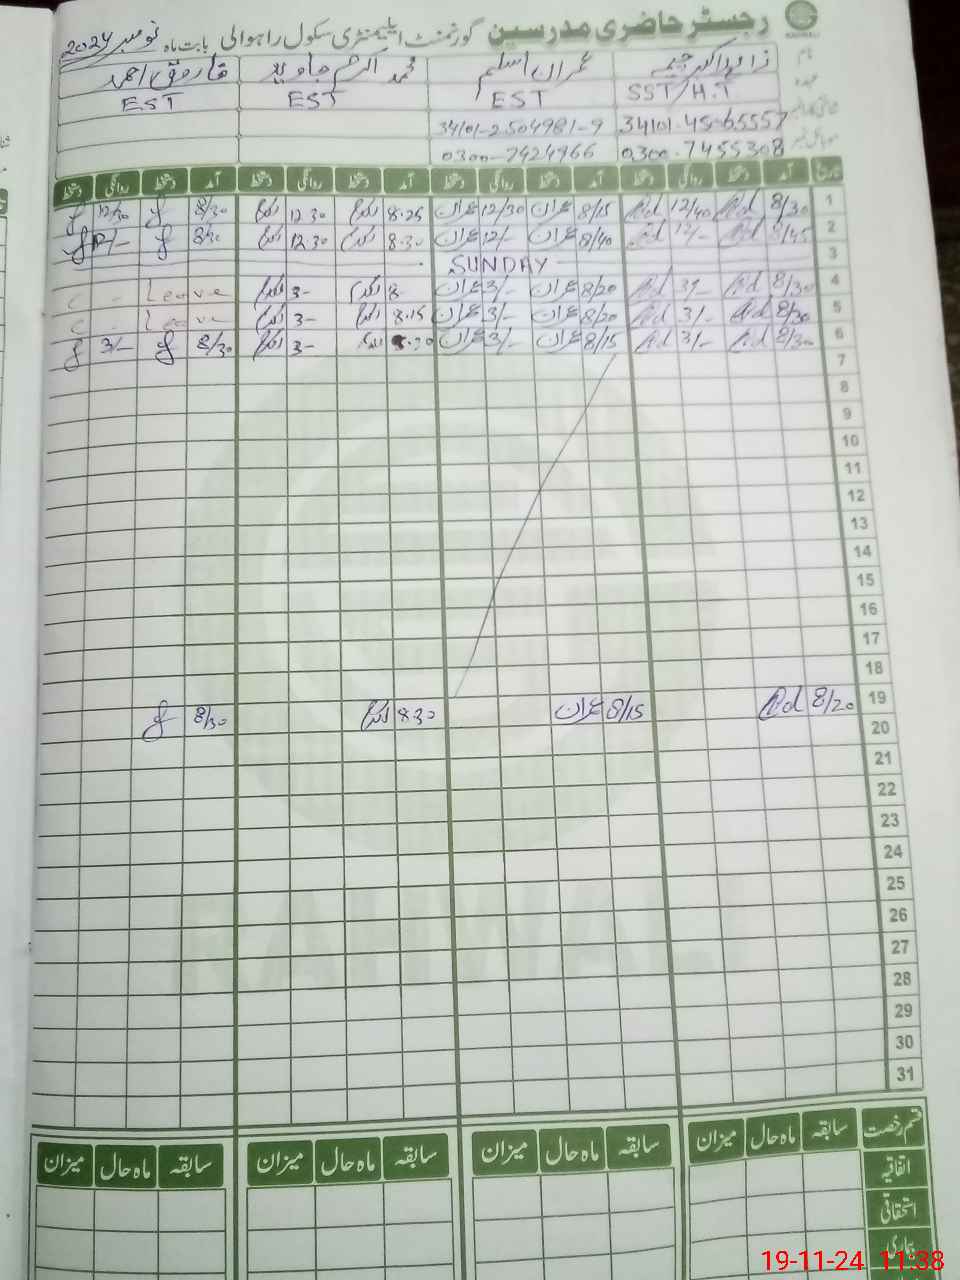 رجسٹر حاضری مدرسین گورنمنٹ ایلیمنٹری سکول راہوالی بابت ماہ نومبر 2024
نام زاہد اکبر چیمہ عمران اسلم محمد اکرم جاوید فاروق احمد
عہدہ SST/H.T EST EST EST
شناختی کارڈ نمبر 34101-2504981-9
موبائل نمبر 0300-7455308 0300-7424966
تاریخ آمد دستخط روانگی دستخط آمد دستخط روانگی دستخط آمد دستخط روانگی دستخط آمد دستخط روانگی دستخط
1 8/30 12/40 8/15 عمران 12/30 عمران 8.25 اکرم 12.30 اکرم 8/30 12/30
2 8/45 12/- 8/40 عمران 12/- عمران 8.30 اکرم 12.30 اکرم 8/30 12/-
3 SUNDAY
4 8/30 3/- 8/20 عمران 3/- عمران 8 اکرم 3- اکرم Leave
5 8/30 3/- 8/20 عمران 3/- عمران 8.15 اکرم 3- اکرم Leave
6 8/30 3/- 8/15 عمران 3/- عمران 8.30 اکرم 3- اکرم 8/30 3/-
7
8
9
10
11
12
13
14
15
16
17
18
19 8/20 8/15 عمران 8.30 اکرم 8/30
20
21
22
23
24
25
26
27
28
29
30
31
قسم رخصت سابقہ ماہ حال میزان سابقہ ماہ حال میزان سابقہ ماہ حال میزان سابقہ ماہ حال میزان
اتفاقیہ
استحقاقی
بیماری
RAHWALI
19-11-24 11:38